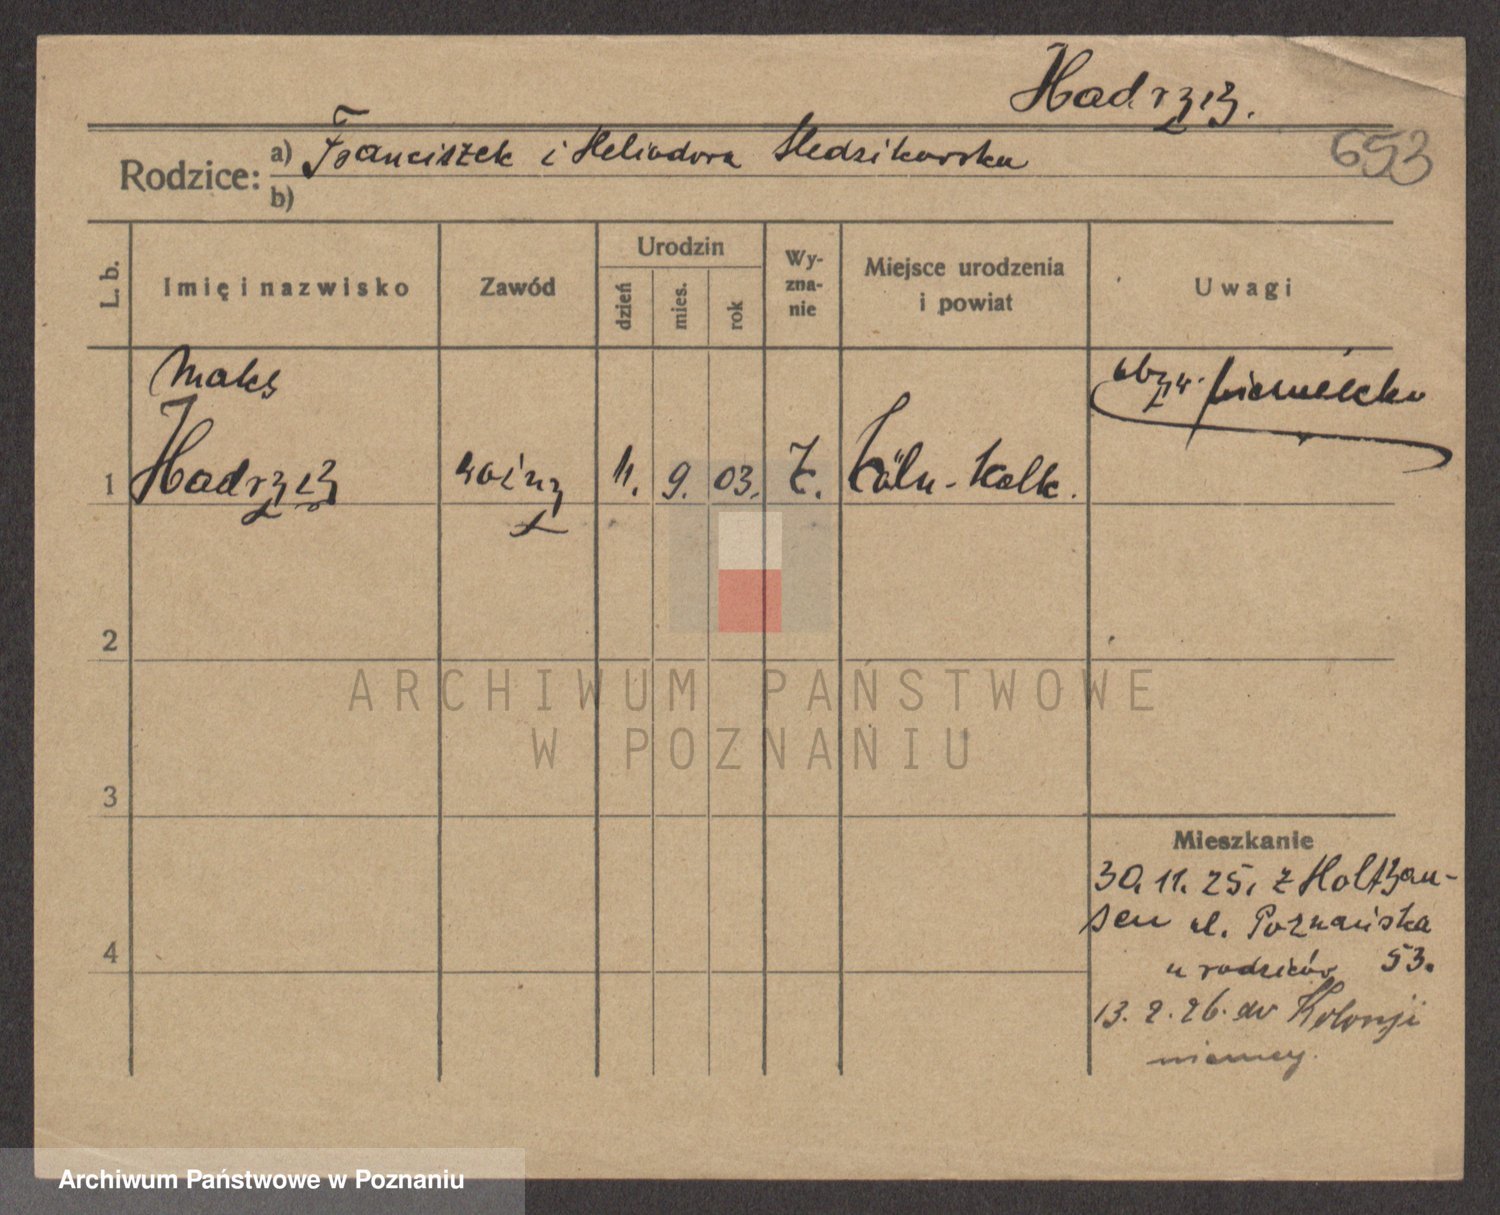 Hadrzÿ.
653
Rodzice: a) Franciszek i Heliodora Śledzikowska
b)
L. b.
Imię i nazwisko
Zawód
Urodzin
dzień
mies.
rok
Wy-
zna-
nie
Miejsce urodzenia
i powiat
Uwagi
Maks
obyw. niemiecka
1 11. 9. 03. Köln - Kalk.
2
ARCHIWUM PAŃSTWOWE
W POZNANIU
3
Mieszkanie
30. 11. 25. z Holtzau-
sen ul. Poznańska
u rodziców 53.
4
13. 2. 26. do Kolonji
niemcy.
Archiwum Państwowe w Poznaniu